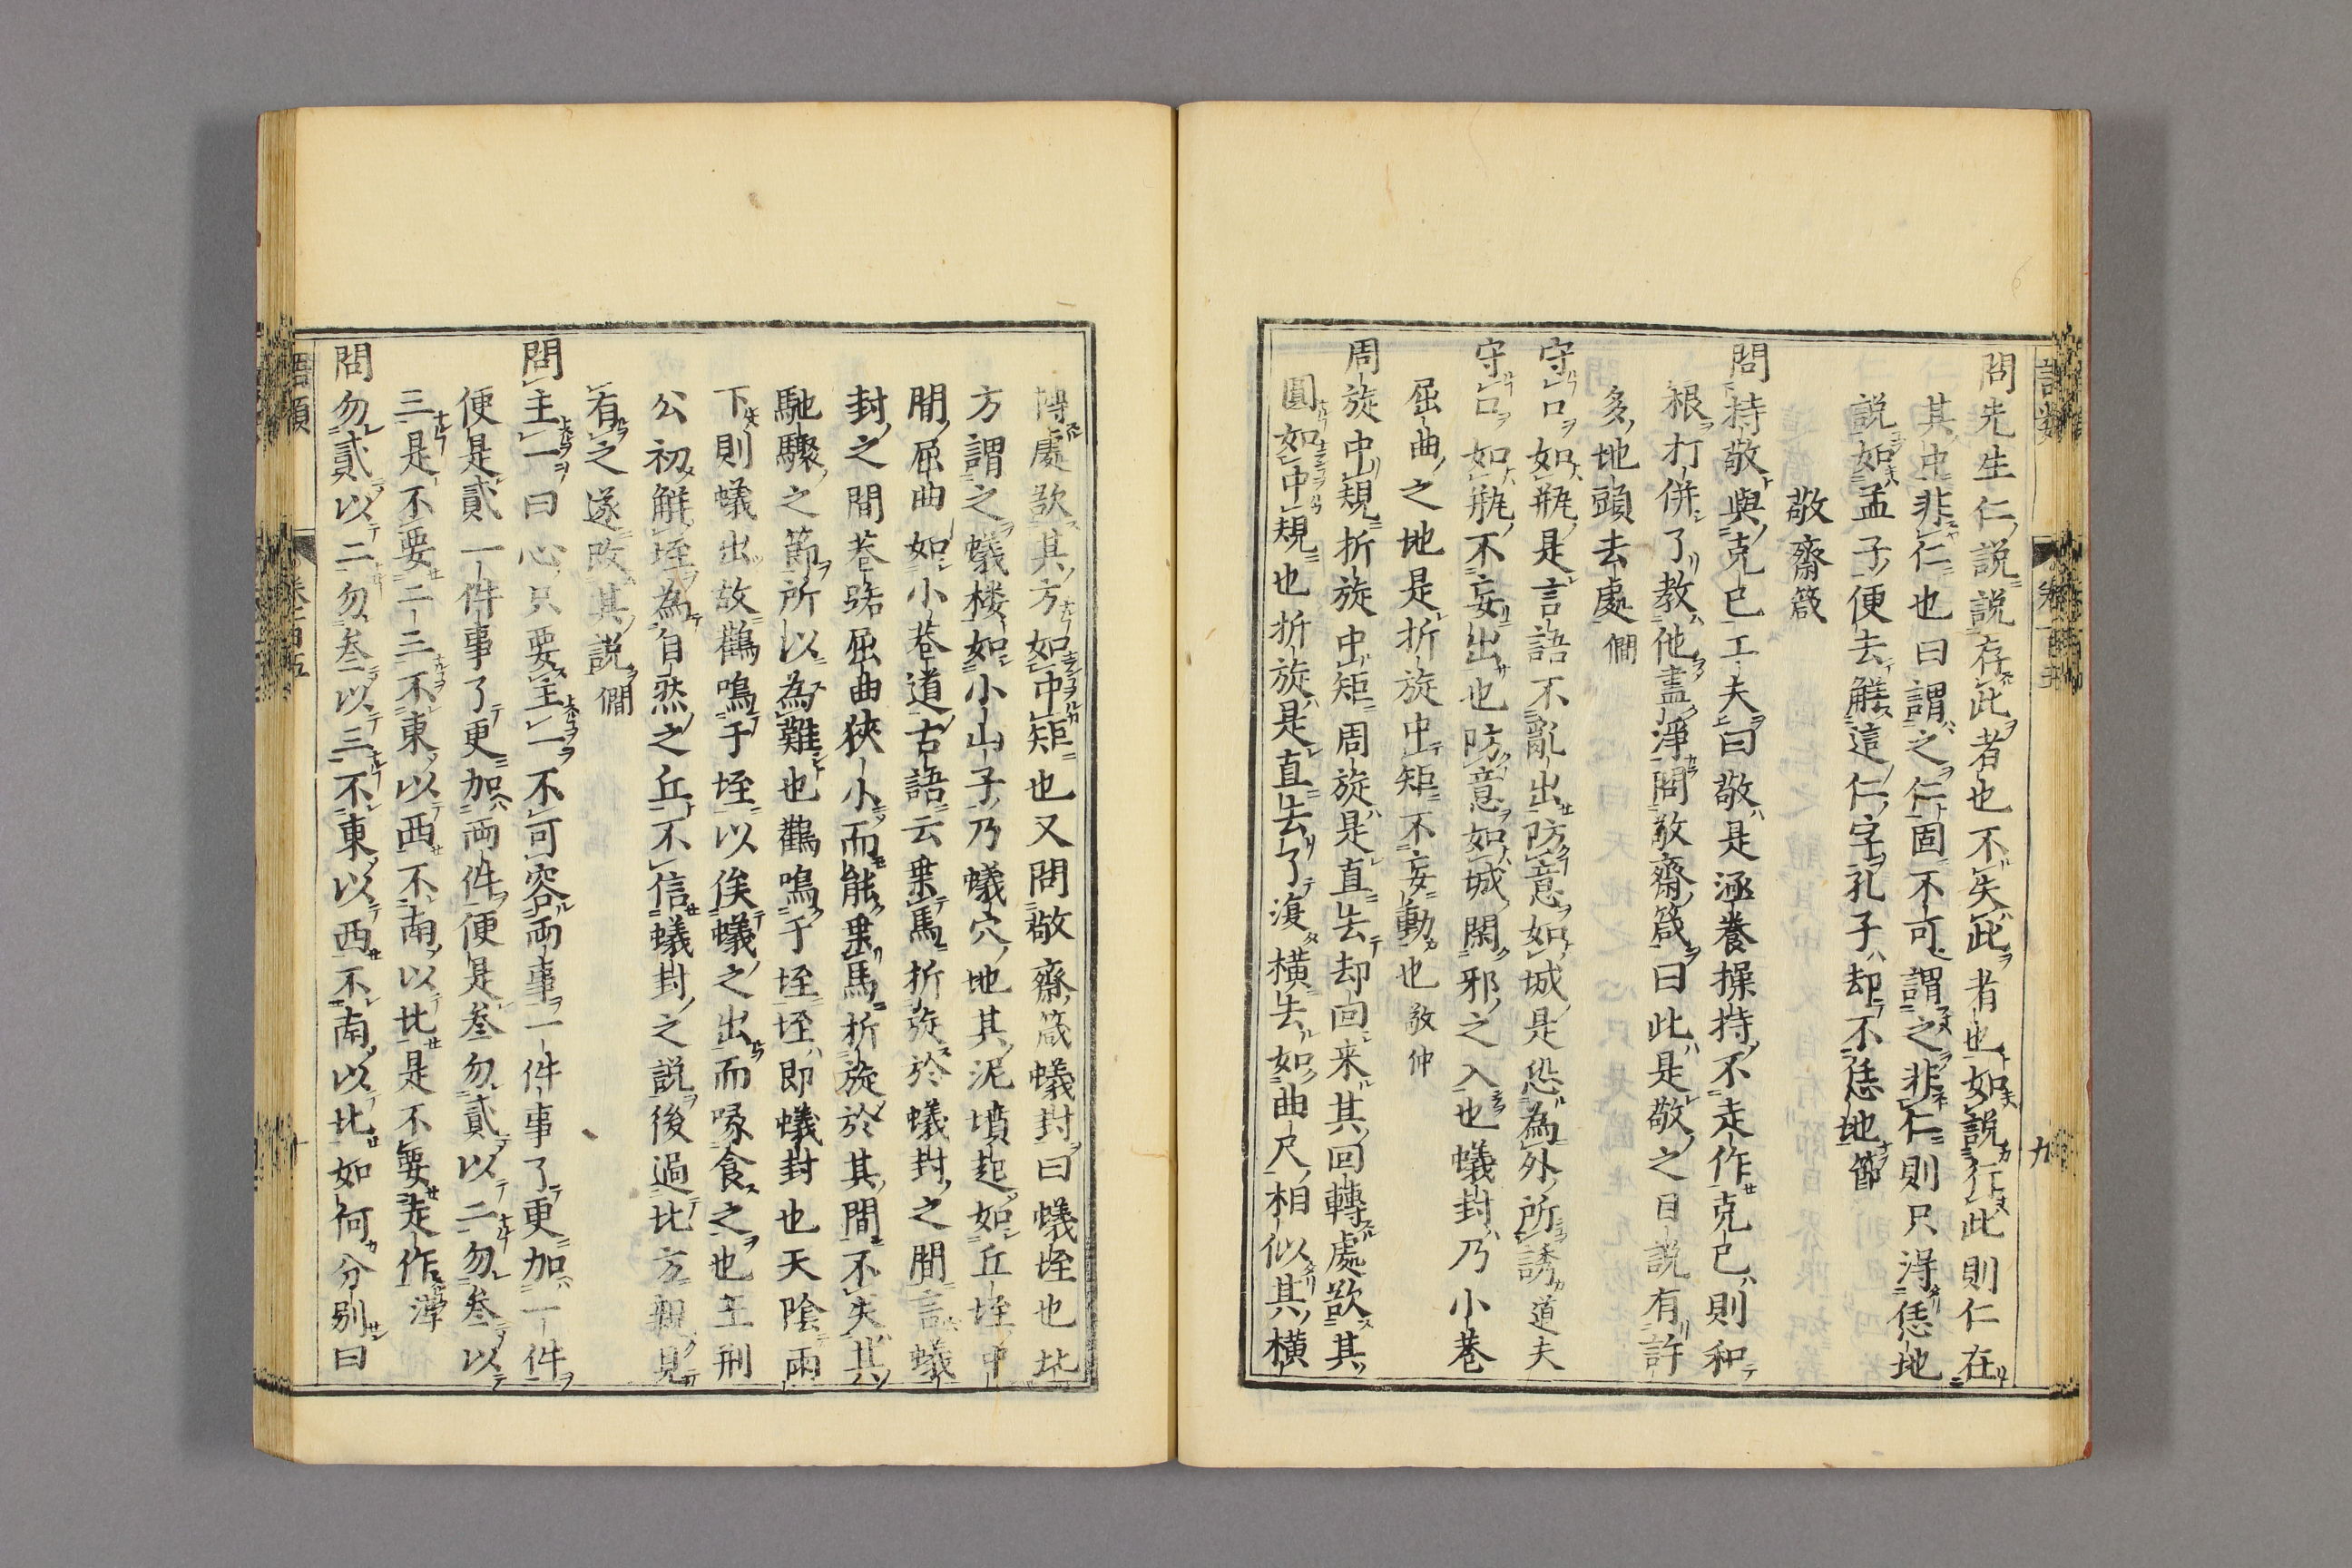 問先生仁說說存此者也不失此者也如說行此則仁在
其中非仁也曰謂之仁固不可謂之非仁則只得恁地
說如孟子便去解這仁字孔子却不恁地節
敬齋箴
問持敬與克己工夫曰敬是涵養操持不走作克己則和
根打併了教他盡淨問敬齋箴曰此是敬之目說有許
多地頭去處僩
守口如瓶是言語不亂出防意如城是恐為外所誘道夫
守口如瓶不妄出也防意如城閑邪之入也蟻封乃小巷
屈曲之地是折旋中矩不妄動也敬仲
周旋中規折旋中矩周旋是直去却回來其回轉處欲其
圓如中規也折旋是直去了復橫去如曲尺相似其橫
轉處欲其方如中矩也又問敬齋箴蟻封曰蟻垤也北
方謂之蟻楼如小山子乃蟻穴地其泥墳起如丘垤中
間屈曲如小巷道古語云乗馬折旋於蟻封之間言蟻
封之間巷路屈曲狹小而能乗馬折旋於其間不失其
馳驟之節所以為難也鸛鳴于垤垤即蟻封也天陰雨
下則蟻出故鸛鳴于垤以俟蟻之出而啄食之也王荆
公初解垤為自然之丘不信蟻封之說後過北方親見
有之遂改其說僩
問主一曰心只要主一不可容兩事一件事了更加一件
便是貳一件事了更加兩件便是叁勿貳以二勿叁以
三是不要二三不東以西不南以北是不要走作淳
問勿貳以二勿叁以三不東以西不南以北如何分別曰
語類 卷一百五 九